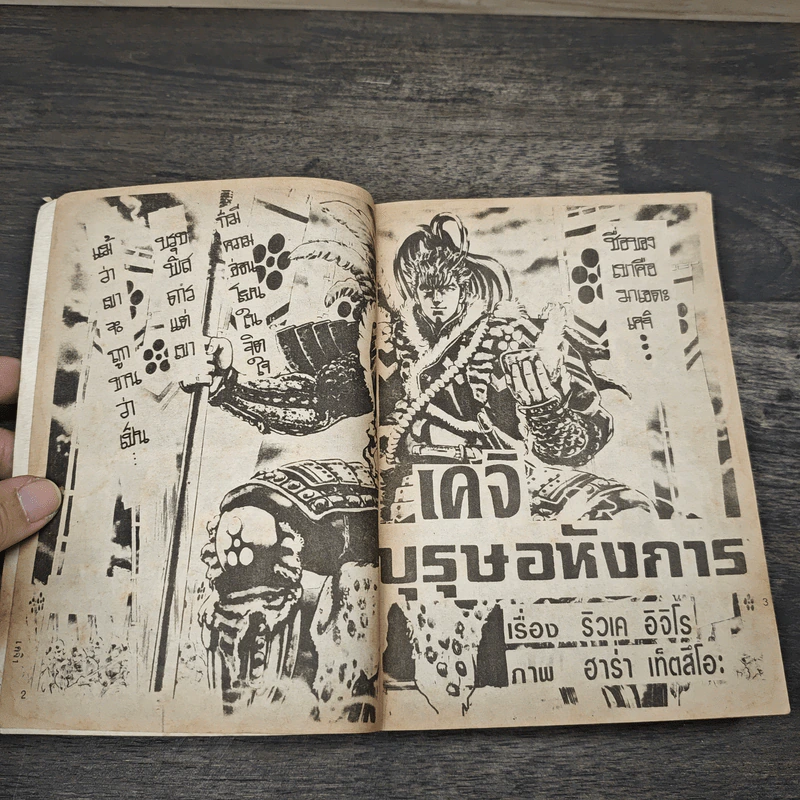 แม้
ว่า
เขา
จะ
ถูก
ขาน
ว่า
เป็น...
บุรุษ
พิส
ดาร
แต่
เขา
ก็มี
ความ
อ่อน
โยน
ใน
จิต
ใจ
2
ชื่อของ
เขาคือ
มาเอดะ
เคจิ...
เคจิ
บุรุษอหังการ
เรื่อง ริวเค อิจิโร
ภาพ ฮารา เท็ตสึโอะ
3